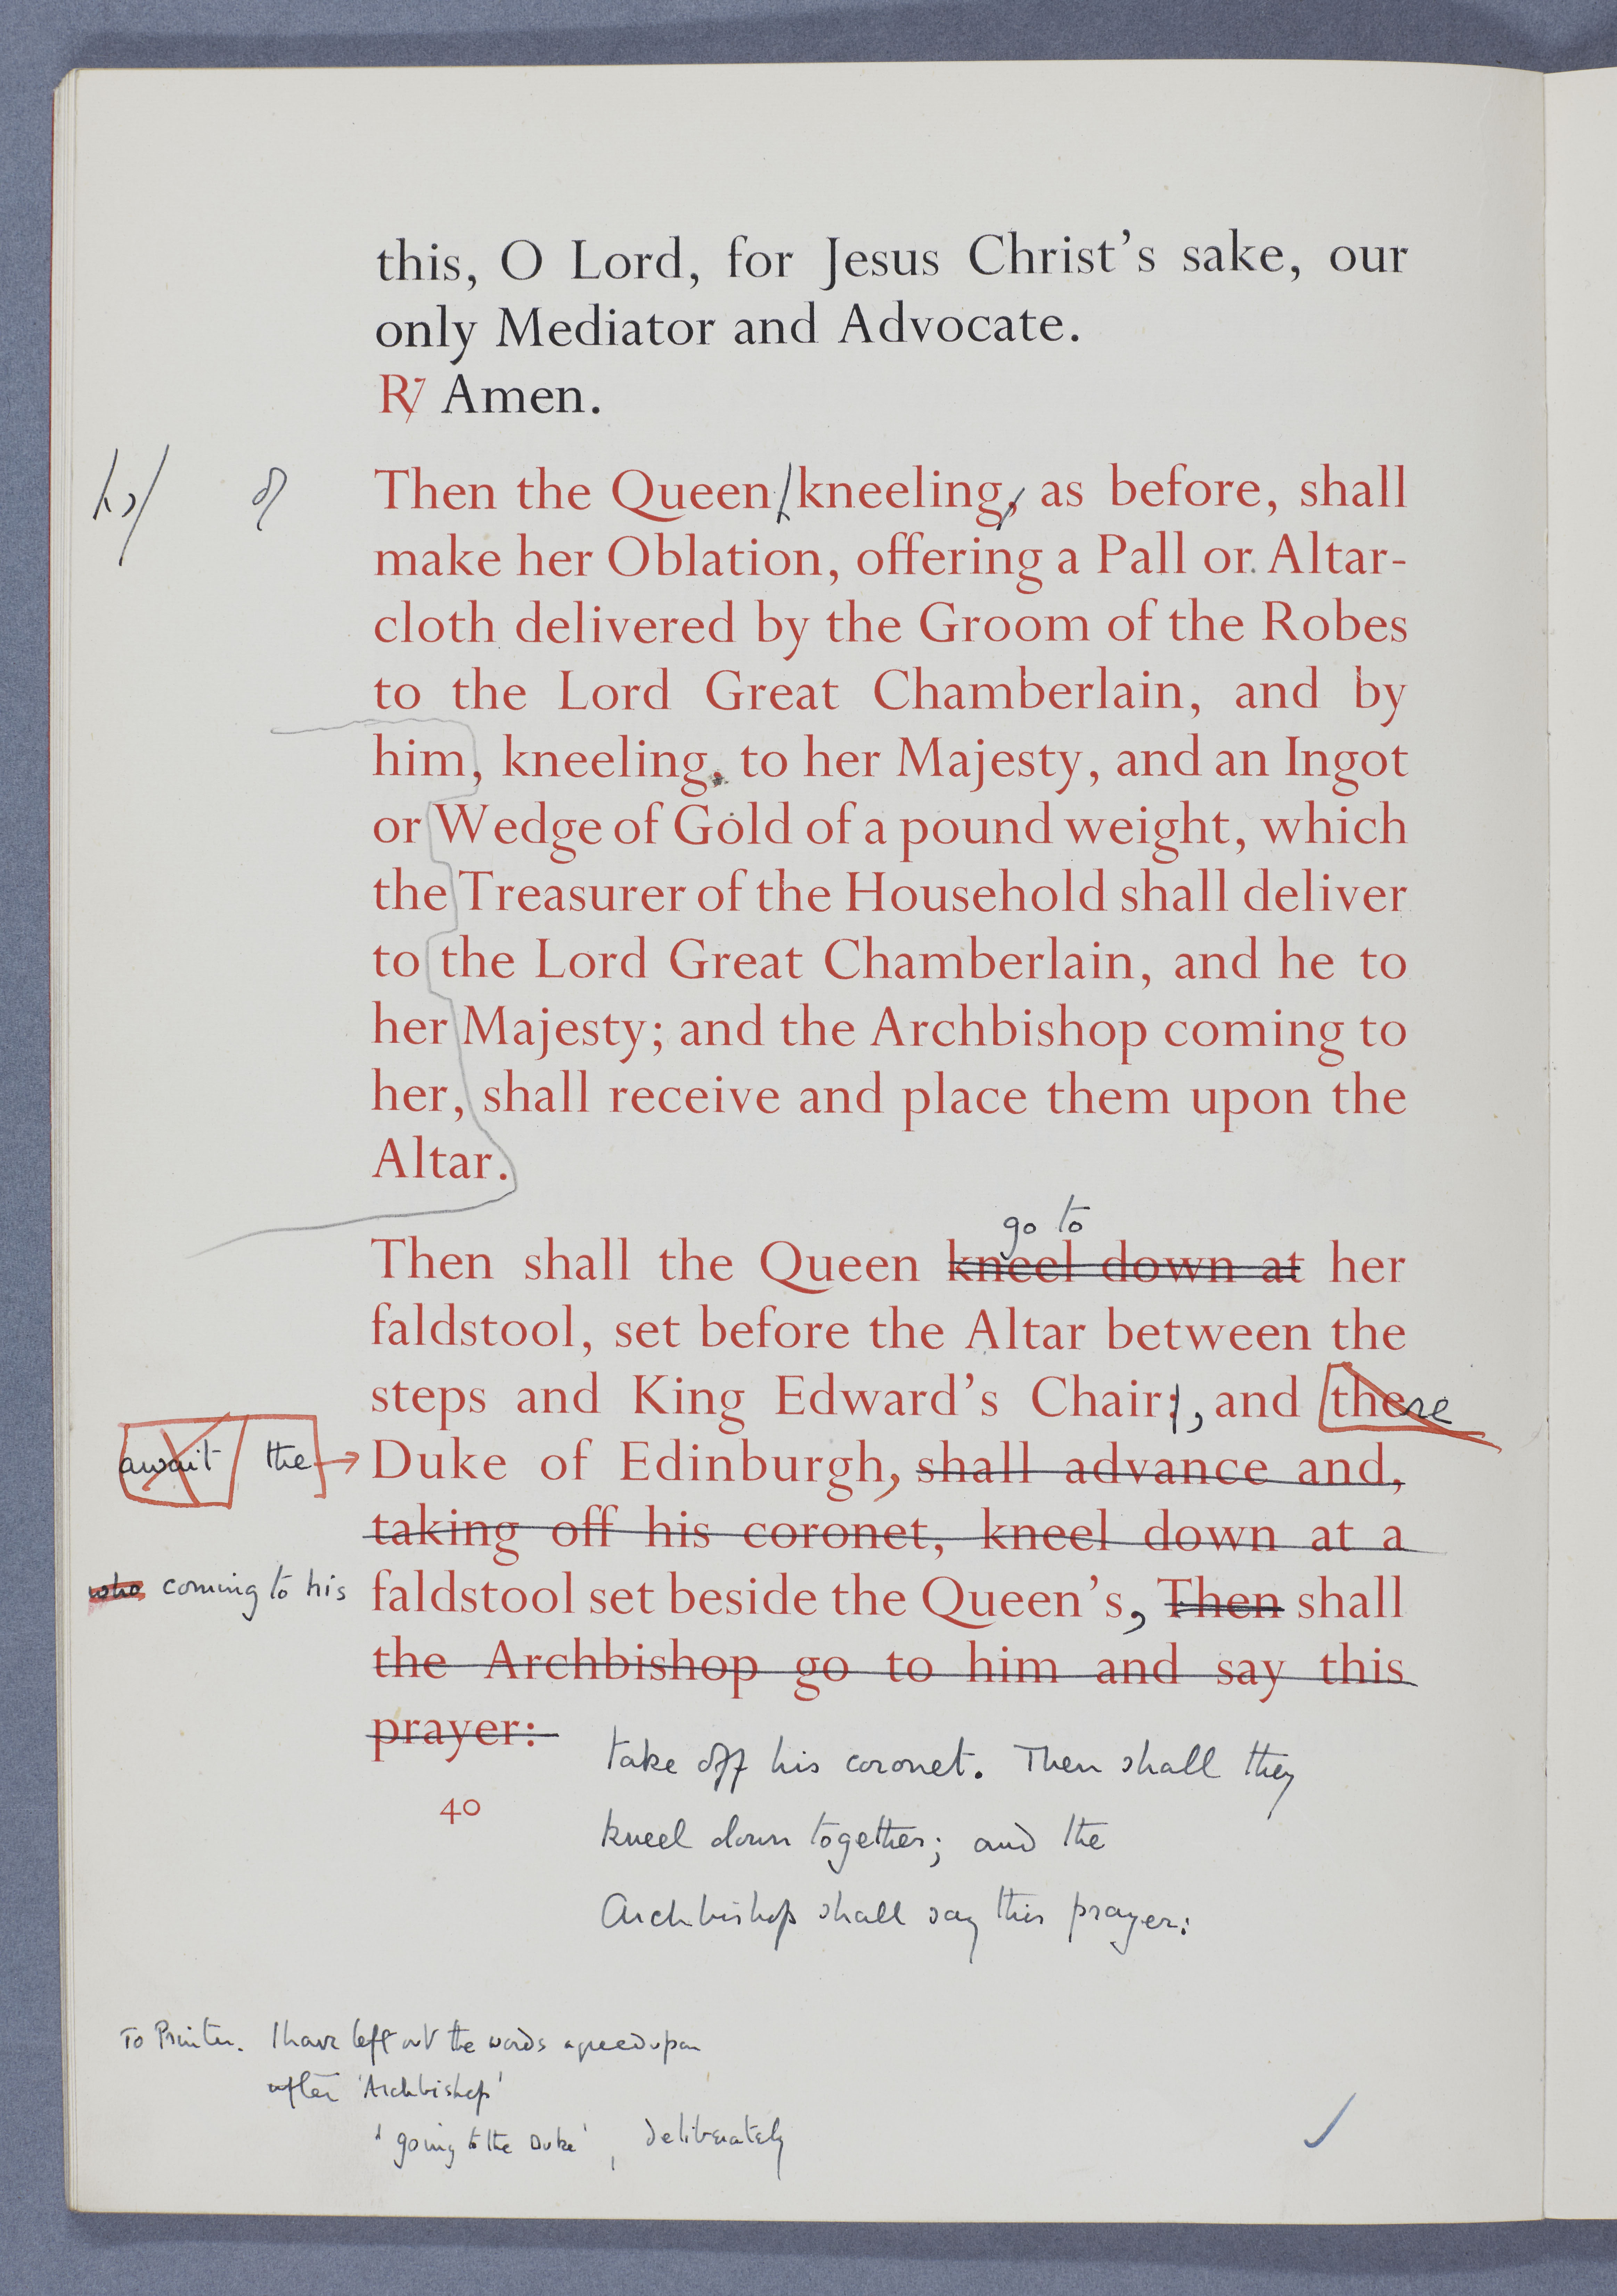 this, O Lord, for Jesus Christ's sake, our
only Mediator and Advocate.
R/ Amen.
Then the Queen kneeling, as before, shall
make her Oblation, offering a Pall or Altar-
cloth delivered by the Groom of the Robes
to the Lord Great Chamberlain, and by
him, kneeling, to her Majesty, and an Ingot
or Wedge of Gold of a pound weight, which
the Treasurer of the Household shall deliver
to the Lord Great Chamberlain, and he to
her Majesty; and the Archbishop coming to
her, shall receive and place them upon the
Altar.
go to
Then shall the Queen kneel down at her
faldstool, set before the Altar between the
steps and King Edward's Chair;, and there
await the Duke of Edinburgh, shall advance and,
taking off his coronet, kneel down at a
who coming to his faldstool set beside the Queen's, Then shall
the Archbishop go to him and say this
prayer:
take off his coronet. Then shall they
40
kneel down together; and the
Archbishop shall say this prayer:
To Printer. I have left out the words agreed upon
after 'Archbishop'
'going to the Duke', deliberately